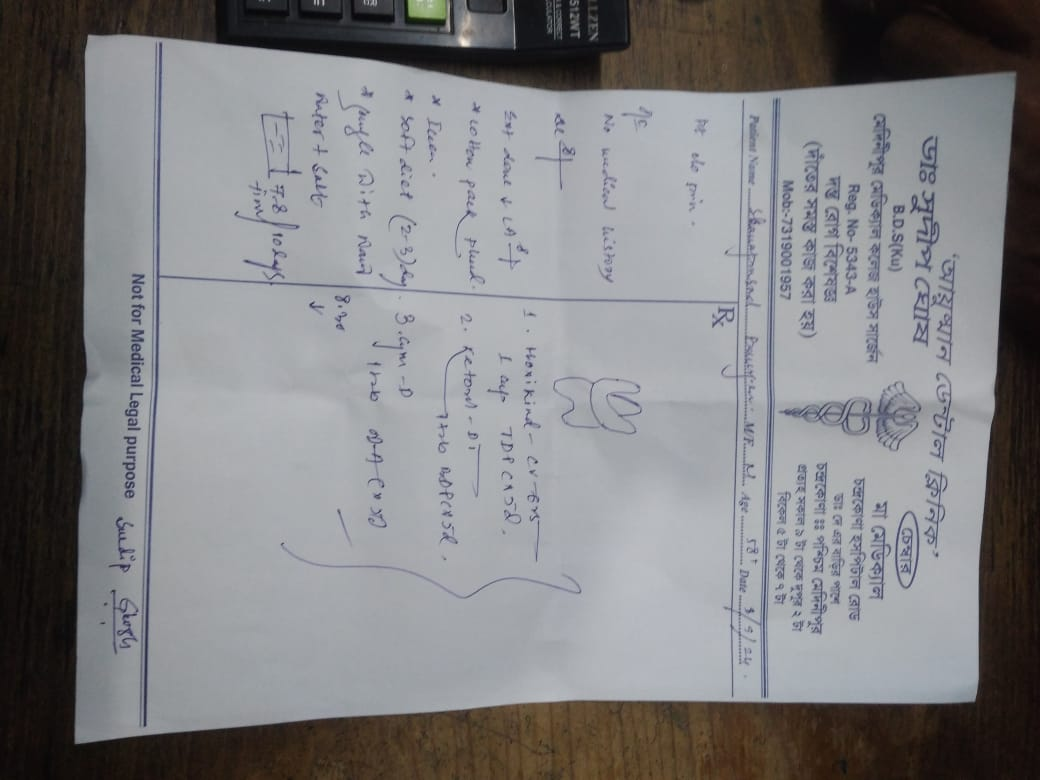 আয়ুষ্মান ডেন্টাল ক্লিনিক
ডাঃ সুদীপ ঘোষ
B.D.S(Ku)
মেদিনীপুর মেডিক্যাল কলেজ হাউস সার্জেন
Reg. No- 5343-A
দন্ত রোগ বিশেষজ্ঞ
(দাঁতের সমস্ত কাজ করা হয়)
Mob:-7319001957
চেম্বার
মা মেডিক্যাল
চন্দ্রকোণা হসপিটাল রোড
ডাঃ দে এর বাড়ির পাশে
চন্দ্রকোণা ঃঃ পশ্চিম মেদিনীপুর
প্রত্যহ সকাল ৯ টা থেকে দুপুর ২ টা
বিকেল ৫ টা থেকে ৭ টা
Patient Name M/F. M. Age 58+ Date 3/9/24.
Rx
Pt c/o pain.
No medical history
Ext done + LA
* cotton pack
* soft diet (2-3) day.
* gargle with warm
water + salt
7-8 time/10 days.
1. - CV-625
1 cap TDPC x 5d.
2. Ketorol-DT
1 tab BDPC x 5d.
3. Gym-D
1 tab
8.30
Not for Medical Legal purpose
Sudip Ghosh
CITIZEN
512WT